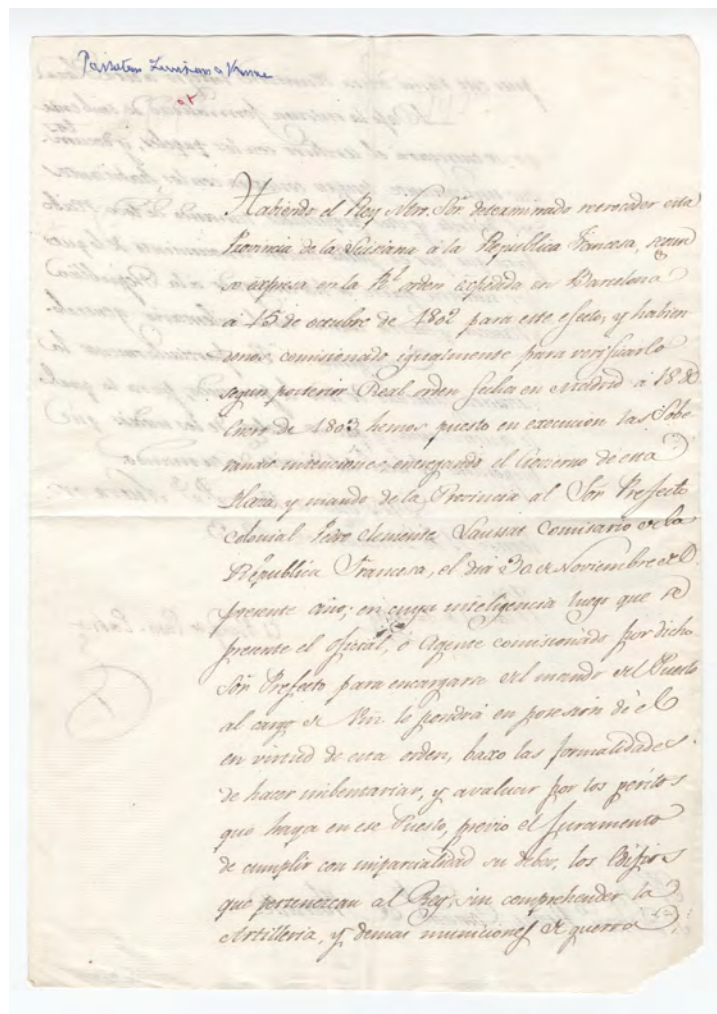 Habiendo el Rey Ntro. Sõr. determinado retroceder esta
Provincia de la Luisiana á la Republica Francesa, segun
se expresa en la Rl. orden expedida en Barcelona
á 15 de octubre de 1802 para este efecto, y habien
donos comisionado igualmente para verificarlo
segun posterior Real orden fecha en Madrid á 18 de
Enero de 1803 hemos puesto en execucion las Sobe
ranas intenciones, entregando el Govierno de esta
Plaza, y mando de la Provincia al Sõr. Prefecto
Colonial Pedro Clemente Laussat Comisario de la
Republica Francesa, el dia 30 de Noviembre del
presente año; en cuya inteligencia luego que se
presente el oficial, ó Agente comisionado por dicho
Sõr. Prefecto para encargarse del mando del Puesto
al cargo de Vm. le pondrá en posesión de él
en virtud de esta orden, baxo las formalidades
de hacer imbentariar, y avaluar por los peritos
que haya en ese Puesto, previo el Juramento
de cumplir con imparcialidad su deber, los Edificios
que pertenezcan al Rey, sin comprehender la
Artilleria, y demas municiones de guerra